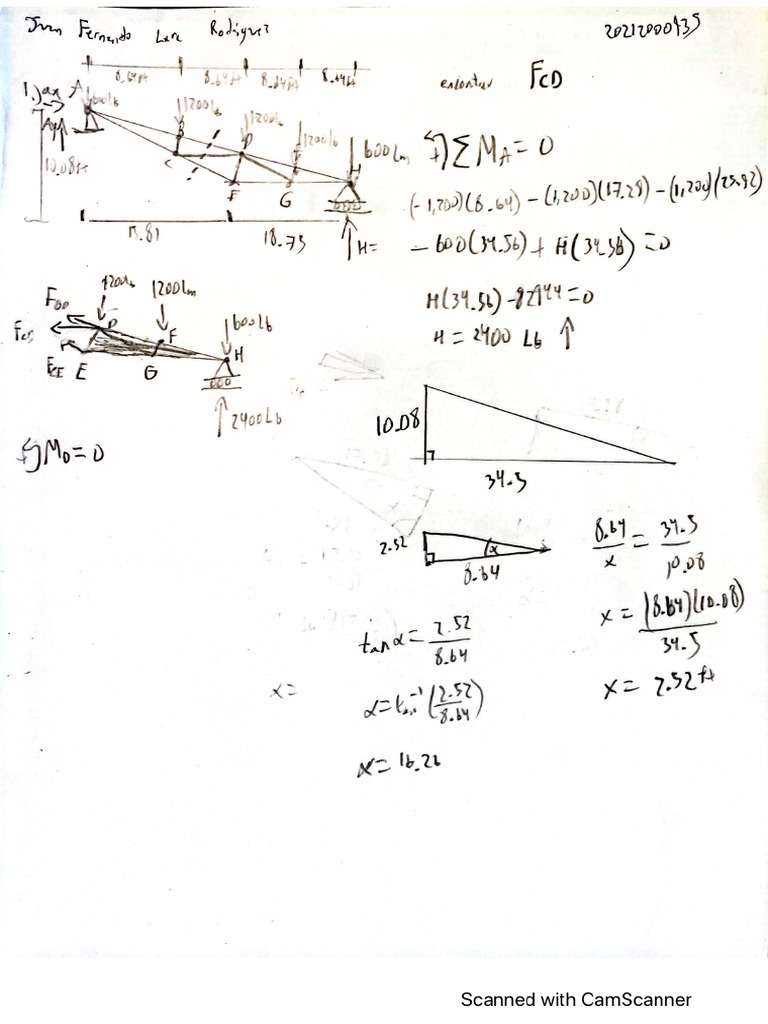 Juan Fernando Lara Rodriguez 20212000935
8.64ft 8.64ft 8.64ft 8.64ft
encontrar FCD
1.) ax A 600lb
Ay 1200lb 1200lb 1200lb 600Lm
B D F H
C E G
10.08ft
15.81 18.75 H=
+ΣMA=0
(-1,200)(8.64) - (1,200)(17.28) - (1,200)(25.92)
- 600(34.56) + H(34.56)=0
H(34.56)-82944=0
H = 2400 Lb ↑
1200lb 1200Lm
FBD D F 600Lb
FCD H
FCE E G
2400Lb
+MD=0
10.08
34.5
2.52 α
8.64
8.64/x = 34.5/10.08
x = (8.64)(10.08)/34.5
x = 2.52ft
tanα = 2.52/8.64
x =
α=tan⁻¹(2.52/8.64)
α= 16.26
Scanned with CamScanner